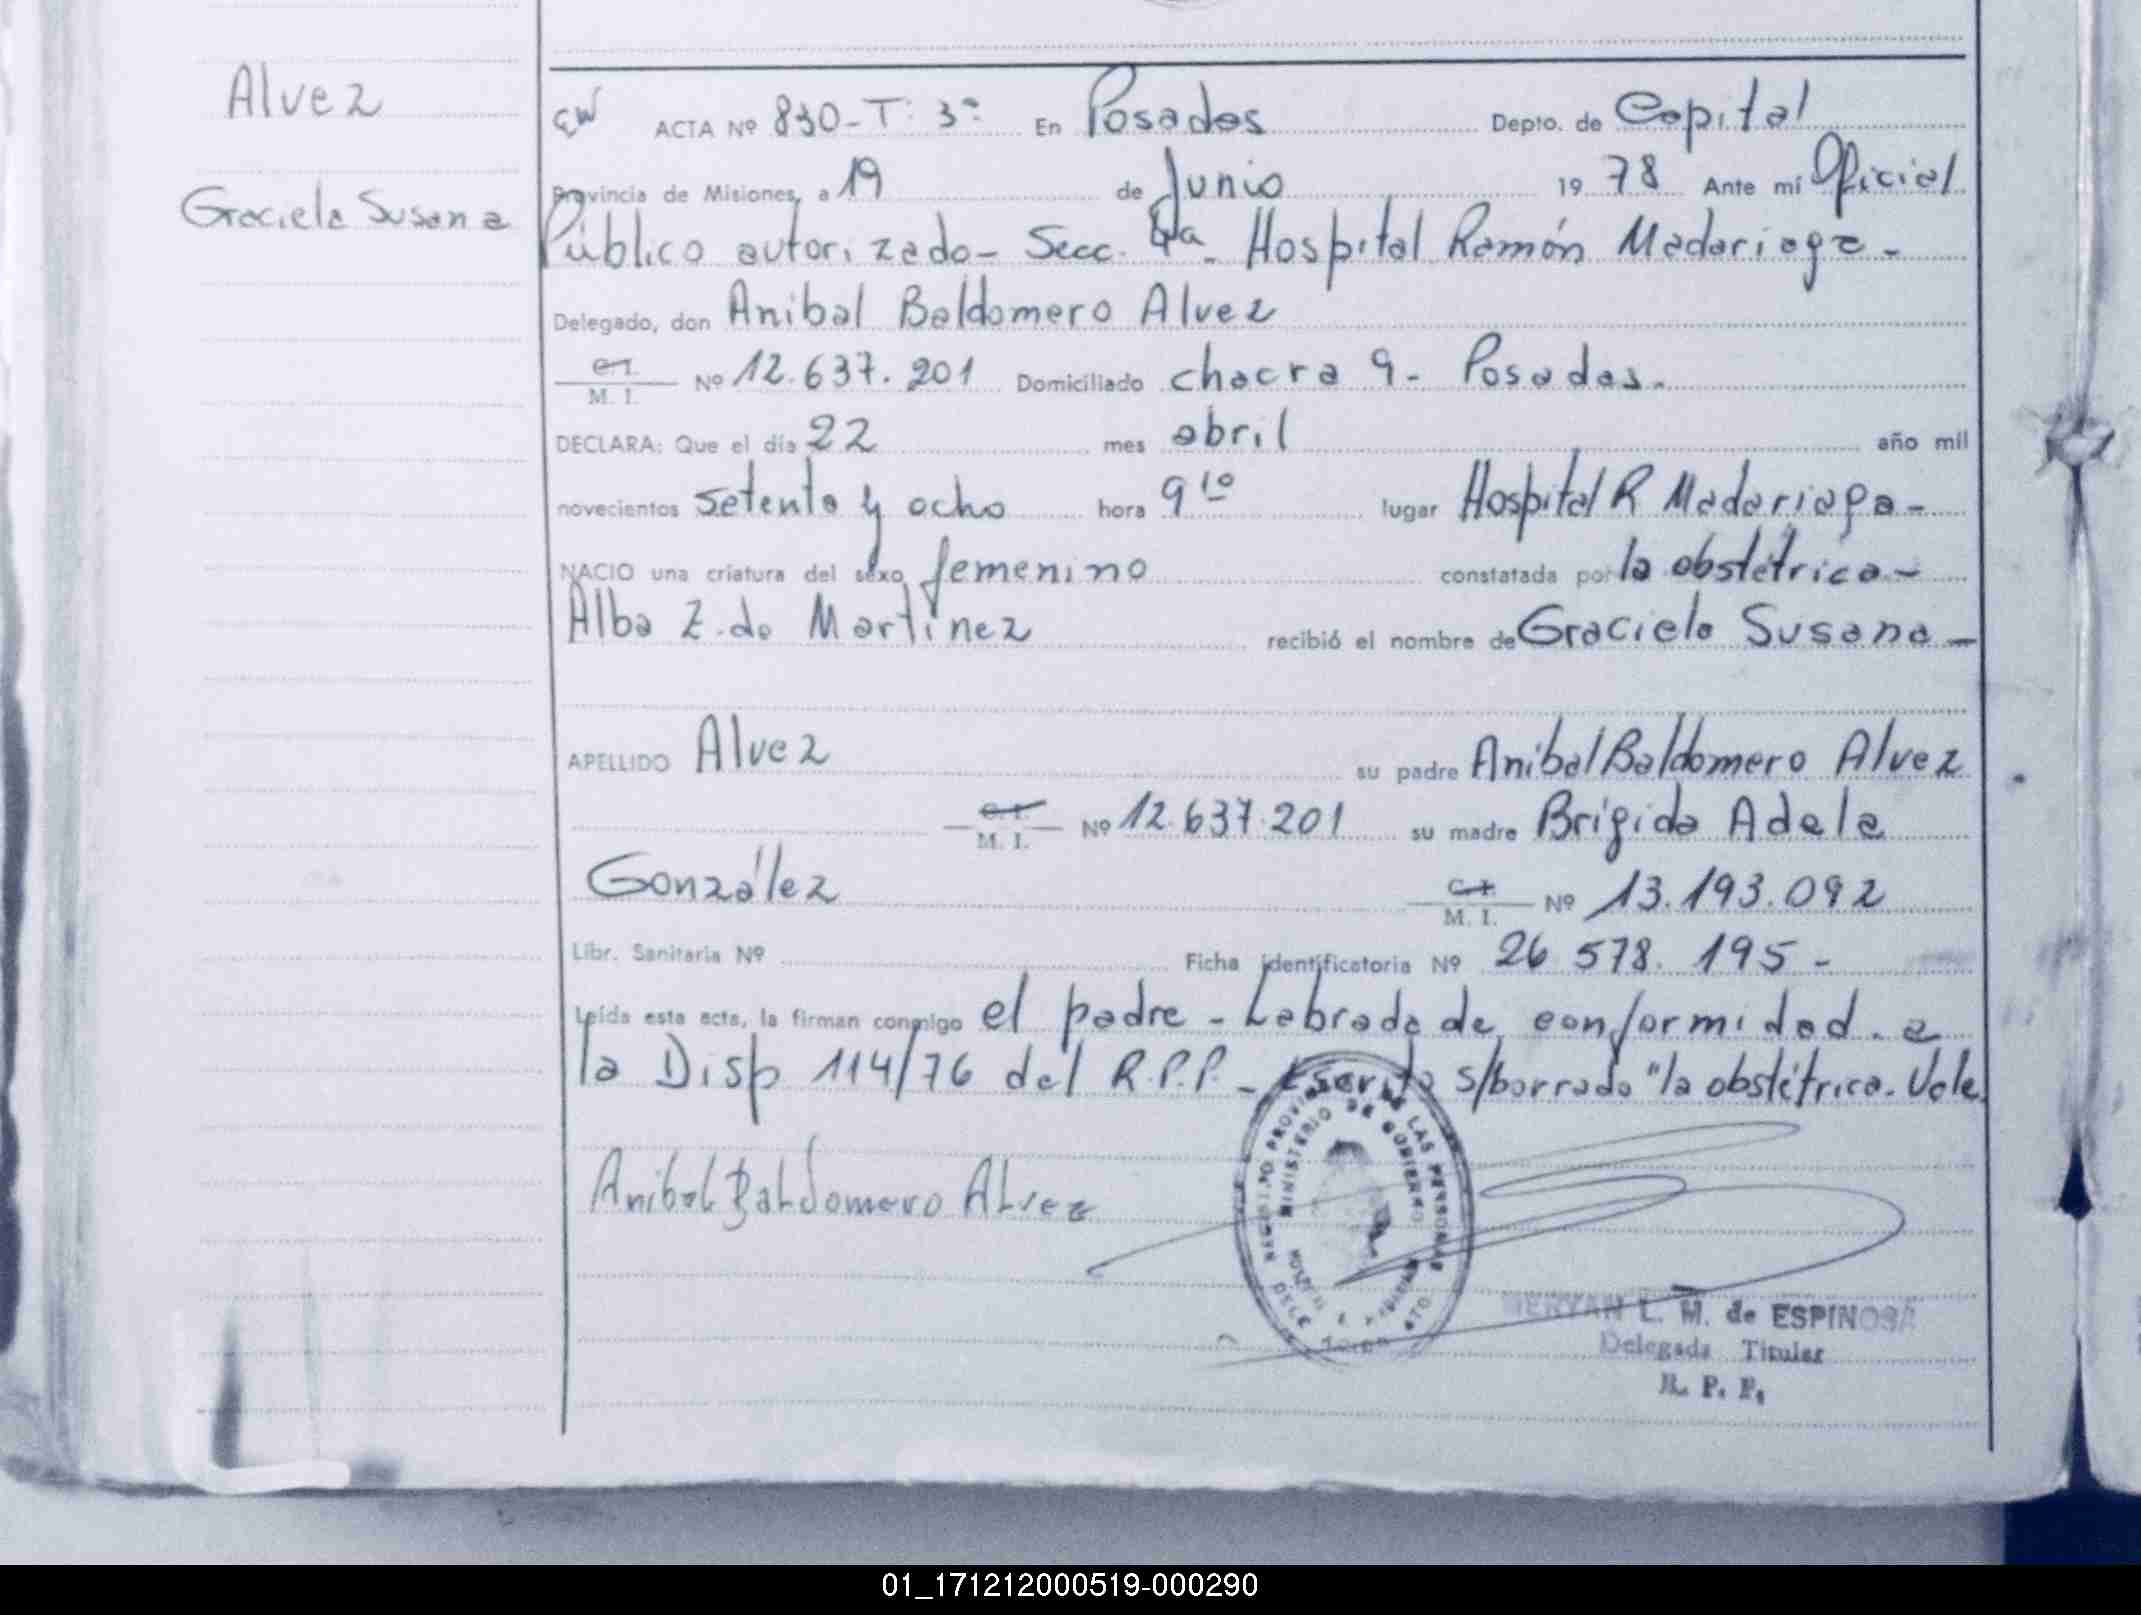 Alvez
Graciela Susana
ACTA Nº 830-T: 3º En Posadas Depto. de Capital
Provincia de Misiones, a 19 de Junio 19 78 Ante mí Oficial
Público autorizado- Secc. 4a- Hospital Ramón Madariaga-
Delegado, don Anibal Baldomero Alvez
C.I.
M. I. Nº 12.637.201 Domiciliado chacra 9- Posadas.
DECLARA: Que el día 22 mes abril año mil
novecientos setenta y ocho hora 9 10 lugar Hospital R Madariaga-
NACIO una criatura del sexo femenino constatada por la obstétrica-
Alba Z. de Martínez recibió el nombre de Graciela Susana-
APELLIDO Alvez su padre Anibal Baldomero Alvez
C.I.
M. I. Nº 12.637.201 su madre Brígida Adela
González C.I.
M. I. Nº 13.193.092
Libr. Sanitaria Nº Ficha identificatoria Nº 26 578. 195-
Leída esta acta, la firman conmigo el padre- Labrada de conformidad a
la Disp 114/76 del R.P.P.- Escrito s/borrado "la obstétrica. Vale
Anibal Baldomero Alvez
REGISTRO PROVINCIAL DE LAS PERSONAS
MINISTERIO DE GOBIERNO
L. M. de ESPINOSA
Delegada Titular
R. P. P.
01_171212000519-000290